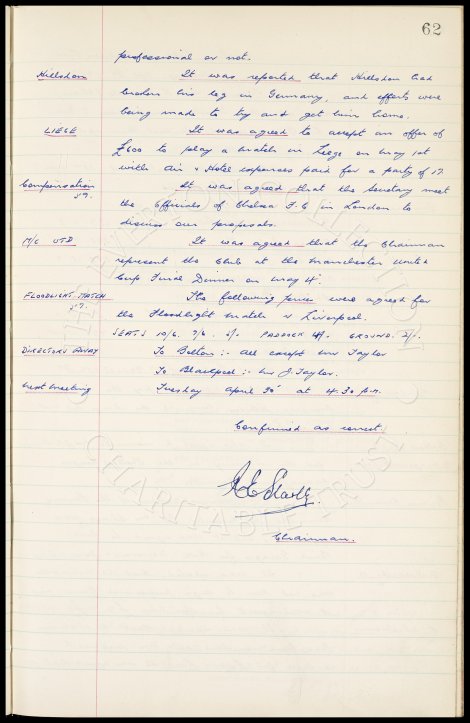 62
professional or not.
Hillsdon It was reported that Hillsdon had
broken his leg in Germany, and efforts were
being made to try and get him home.
LIEGE It was agreed to accept an offer of
£600 to play a match in Liege on May 1st
with Air & Hotel expenses paid for a party of 17.
Compensation It was agreed that the Secretary meet
the Officials of Chelsea F.C in London to
discuss our proposals.
M/C UTD It was agreed that the Chairman
represent the Club at the Manchester United
Cup Final Dinner on May 4th.
FLOODLIGHT MATCH The following prices were agreed for
the Floodlight match v Liverpool.
SEATS 10/6. 7/6. 5/- PADDOCK GROUND. 2/-.
DIRECTORS AWAY To Bolton:- all except Mr Taylor
To Blackpool:- Mr J. Taylor.
Next Meeting Tuesday April 30th at 4.30 p.m.
Confirmed as correct.
Chairman.
THE EVERTON COLLECTION
CHARITABLE TRUST